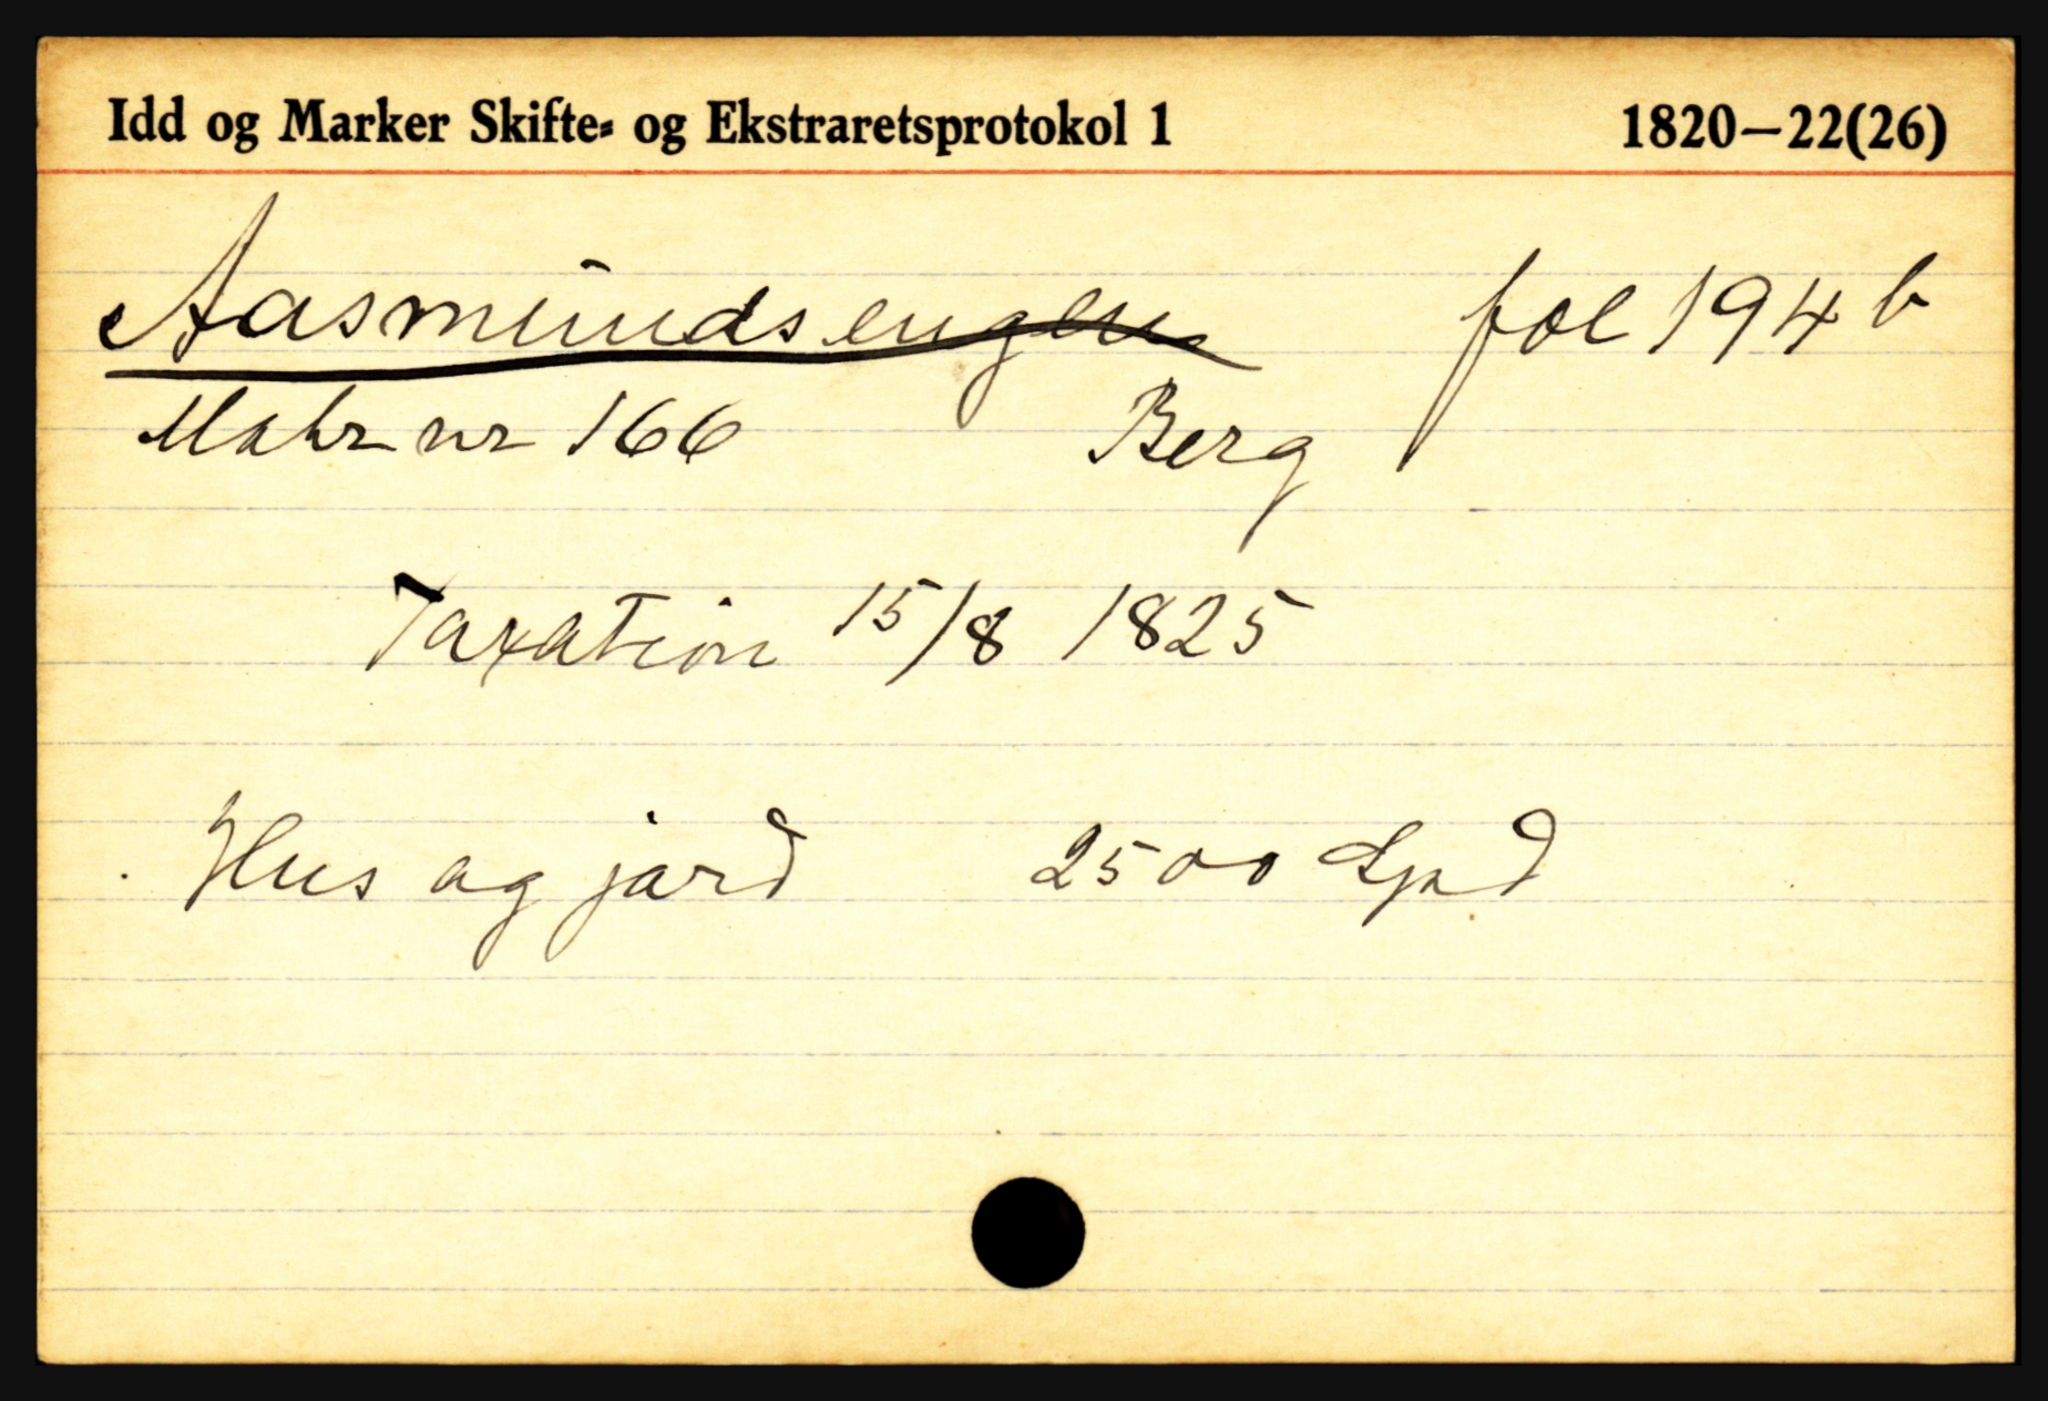 Idd og Marker Skifte- og Ekstraretsprotokol 1 1820–22(26)
Aasmundsengen fol 194 b
Matr nr 166 Berg
Taxation 15/8 1825
Hus og jord 2500 Spd